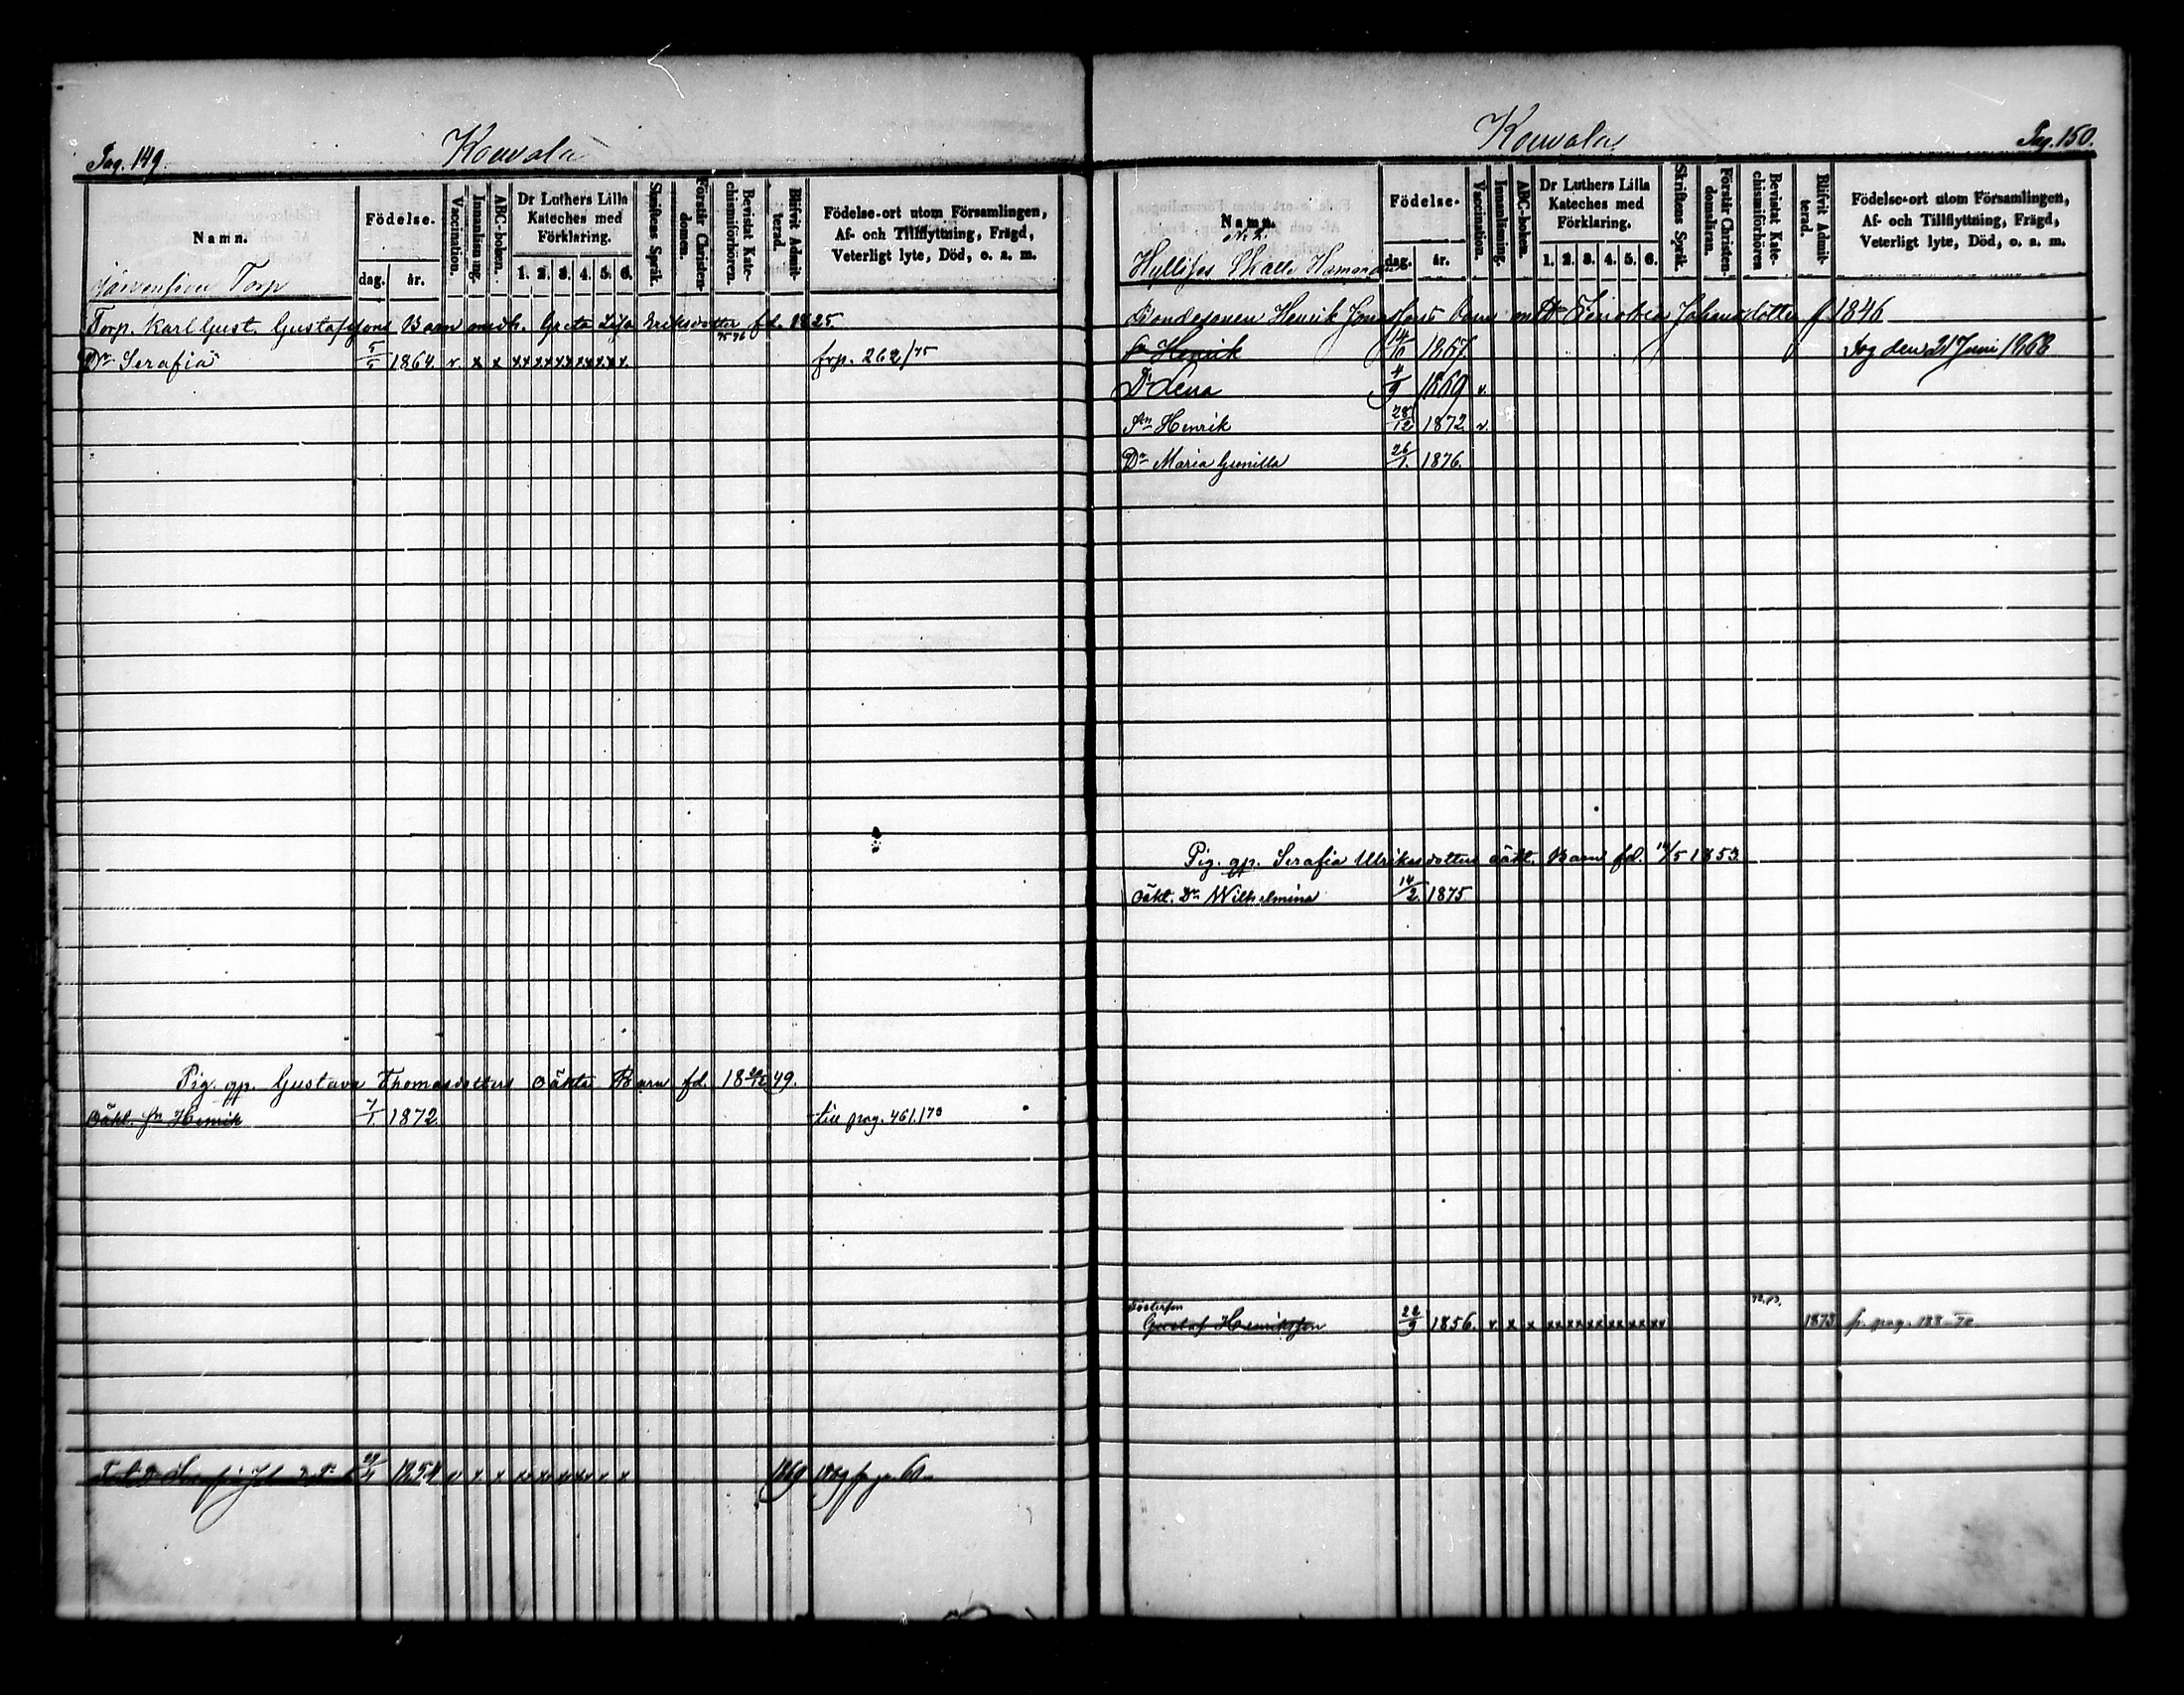 Pag. 149.
Kouvola
Namn.
Födelse.
dag.
år.
Vaccination.
Innanläsning.
ABC-boken.
Dr Luthers Lilla Kateches med Förklaring.
1. 2. 3. 4. 5. 6.
Skriftens Språk.
Förstår Christendomen.
Bevistat Katechismiförhören.
Blifvit Admitterad.
Födelse-ort utom Församlingen,
Af- och Tillflyttning, Frägd,
Veterligt lyte, Död, o. a. m.
Torp
Torp. Karl Gust. Gustafssons Barn med h. Greta Lisa Eriksdotter fd. 1825.
75 76
Dr Serafia 5/5 1864. v. x x xx xx xx xx xx x. frp. 262/75
Pig. gp. Gustava Thomasdotters oäkta Barn fd. 18 49.
oäkt. sn Henrik 7/1. 1872. till pag. 461.173
1854 v x x xx xx xx xx x x 1869
Pag. 150.
Kouvola
Namn.
No 2.
Födelse.
dag.
år.
Vaccination.
Innanläsning.
ABC-boken.
Dr Luthers Lilla Kateches med Förklaring.
1. 2. 3. 4. 5. 6.
Skriftens Språk.
Förstår Christendomsläran.
Bevistat Katechismiförhören
Blifvit Admitterad.
Födelse-ort utom Församlingen,
Af- och Tillflyttning, Frägd,
Veterligt lyte, Död, o. a. m.
Bondesonen Henrik barn med Johansdotter f 1846
Sn Henrik 14/6 1867 Dog den 21 Juni 1868
Dr Lena 4/9 1869 v.
Sn Henrik 28/12 1872 v.
Dr Maria Gunilla 26/1. 1876.
Pig. gp. Serafia Ulriksdotters oäkt. Barn fd. /5 1853
oäkt. Dr Wilhelmina 14/2. 1875
Fosterson
Gustaf Henriksson 22/9 1856. v x x xx xx xx xx xx xx 1873 fr. pag. 188